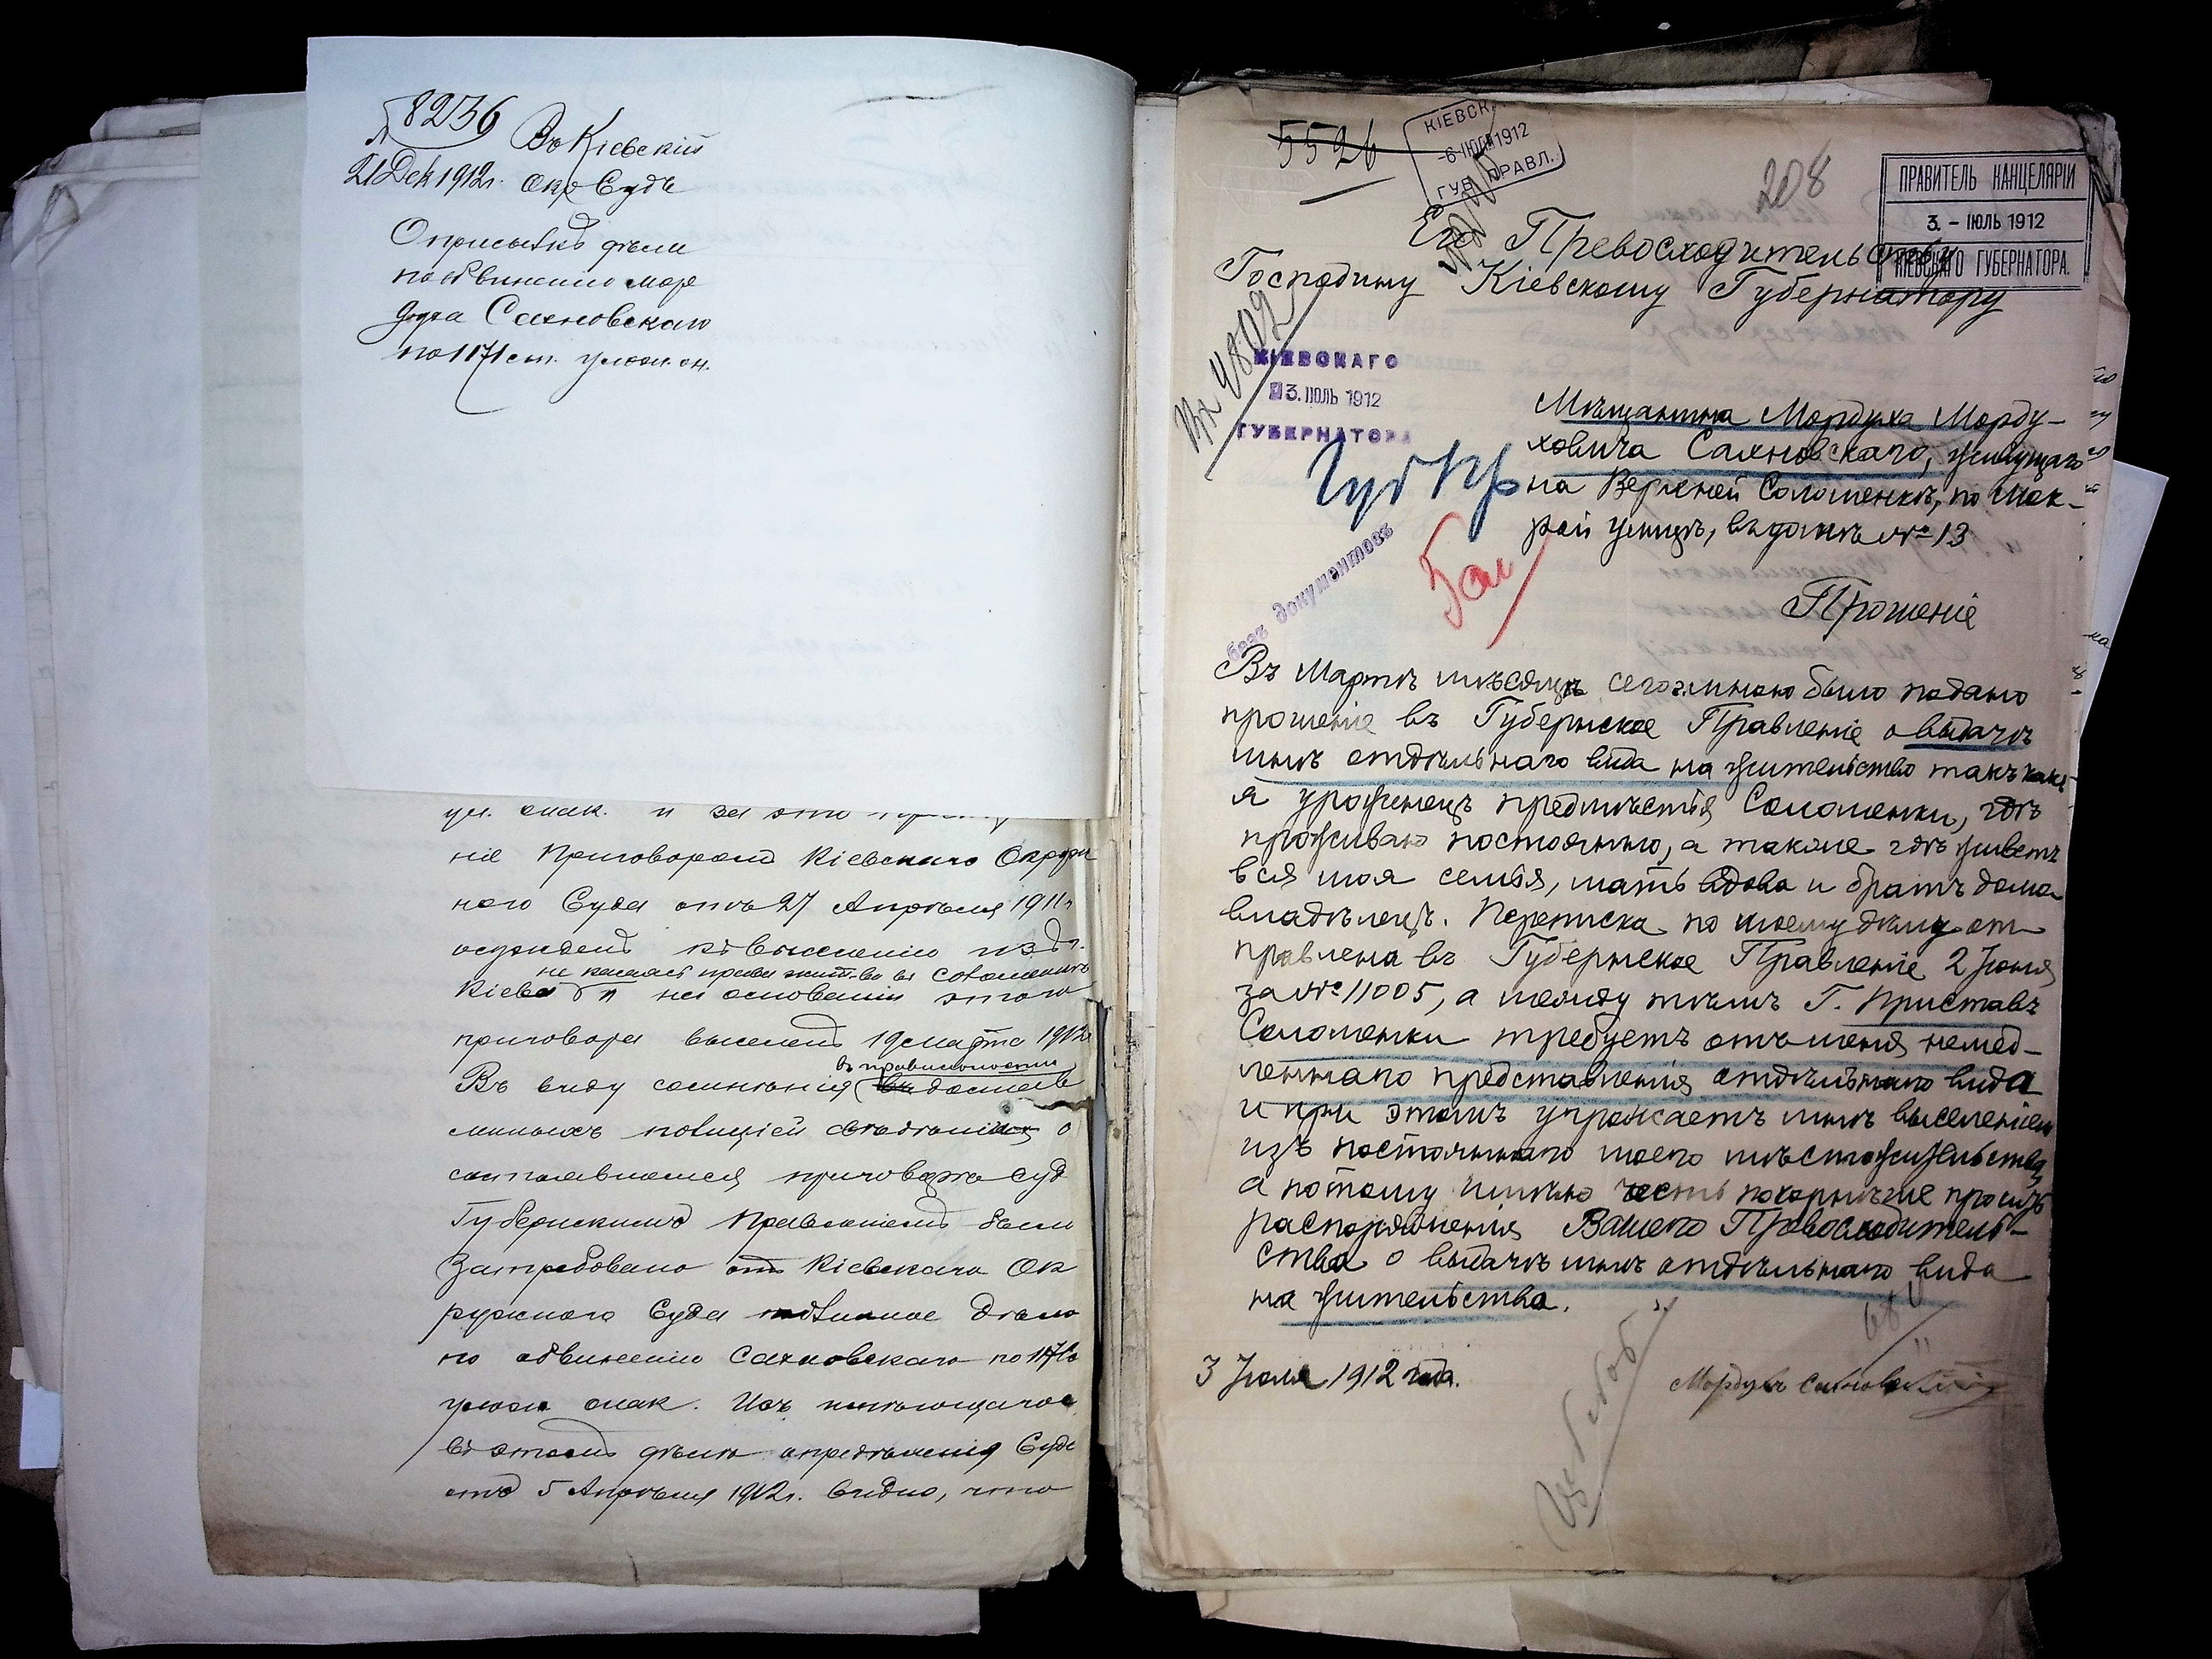 8236
Въ Кіевскій
21 Дек 1912г. Окр Судъ
О присылкѣ дѣла
по обвиненію Мор
духа Сахновскаго
по 1171 ст. улож. о н.
ул. о нак. и за это
ніе Приговоромъ Кіевскаго Окруж
наго Суда отъ 27 Апрѣля 1911 г
осужденъ къ выселенію изъ г.
не касаясь права жит-ва въ Соломенкѣ
Кіева и на основаніи этого
приговора выселенъ 19 марта 1912
въ правильности
Въ виду сомнѣнія достав
ленныхъ полиціей свѣдѣній о
состоявшемся приговорѣ суд
Губернскимъ Правленіемъ было
затребовано отъ Кіевскаго Ок
ружного Суда подлинное дѣло
по обвиненію Сахновскаго по 1171 с
улож о нак. Изъ имѣющагося
въ этомъ дѣлѣ опредѣленія Суда
отъ 5 Апрѣля 1912 г. видно, что
5526
КІЕВСК.
-6 ІЮЛ 1912
ГУБ. ПРАВЛ.
208
ПРАВИТЕЛЬ КАНЦЕЛЯРІИ
3. - ІЮЛЬ 1912
КІЕВСКАГО ГУБЕРНАТОРА.
Его Превосходительству
Господину Кіевскому Губернатору
Вх 4802
КІЕВСКАГО
3. ІЮЛЬ 1912
ГУБЕРНАТОРА
Мѣщанина Мордуха Морду-
ховича Сахновскаго, живущаго
на Верхней Соломенкѣ, по Мок-
рой улицѣ, въ домѣ № 13
Губ Пр
безъ документовъ
Прошеніе
Въ Мартѣ мѣсяцѣ сего г. мною было подано
прошеніе въ Губернское Правленіе о выдачѣ
мнѣ отдѣльнаго вида на жительство такъ какъ
я уроженецъ предмѣстья Соломенки, гдѣ
проживаю постоянно, а также гдѣ живетъ
вся моя семья, мать вдова и братъ домо-
владѣлецъ. Переписка по моему дѣлу от-
правлена въ Губернское Правленіе 2 Іюня
за № 11005, а между тѣмъ Г. Приставъ
Соломенки требуетъ отъ меня немед-
леннаго представленія отдѣльнаго вида
и при этомъ угрожаетъ мнѣ выселеніемъ
изъ постояннаго моего мѣстожительства
а потому имѣю честь покорнѣйше просить
распоряженія Вашего Превосходитель-
ства о выдачѣ мнѣ отдѣльнаго вида
на жительство.
3 Іюля 1912 года.
Мордухъ Сахновскій